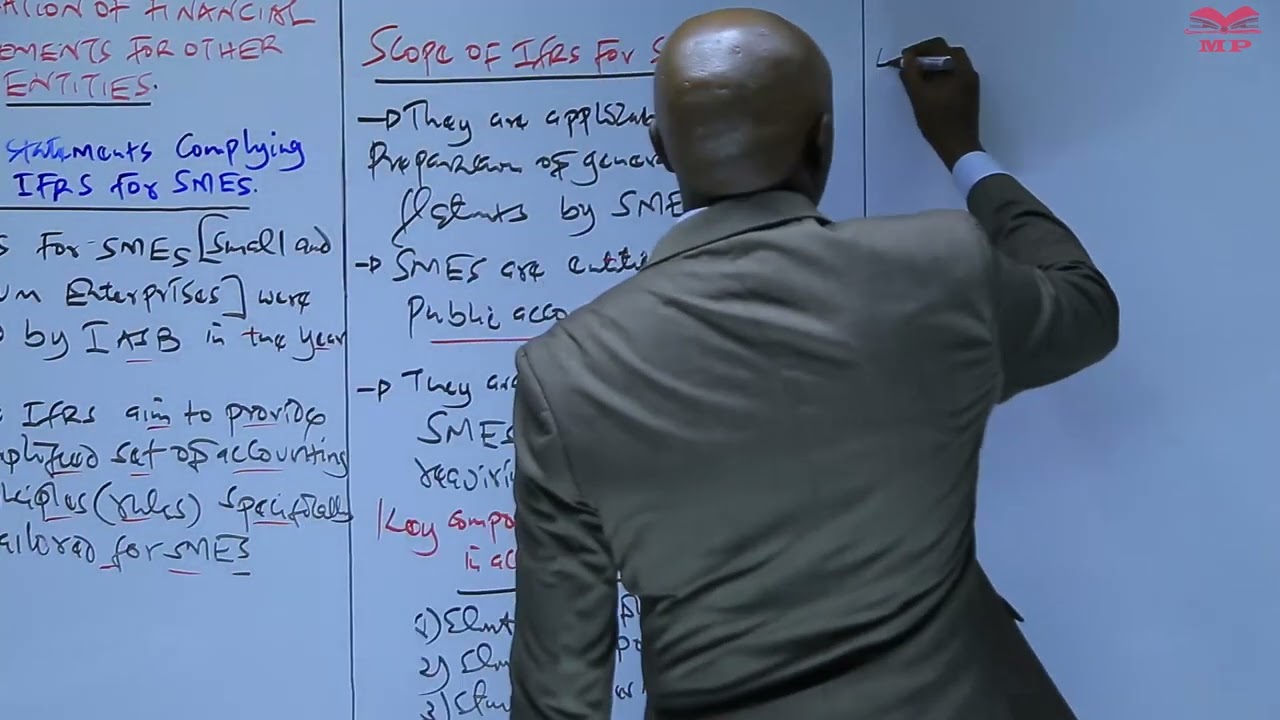 ATION OF FINANCIAL
EMENTS FOR OTHER
ENTITIES.
Statements Complying
IFRS FOR SMES.
S FOR SMES [Small and
UM Enterprises] were
by IASB in the year
IFRS aim to provide
set of accounting
(rules) specifically
ailored for SMES
SCOPE OF IFRS FOR S
They are
Preparation of genera
by SME
SMES are entiti
Public acco
They are
SMES
requirin
Key compo
in ac
1)
2)
3)
MP